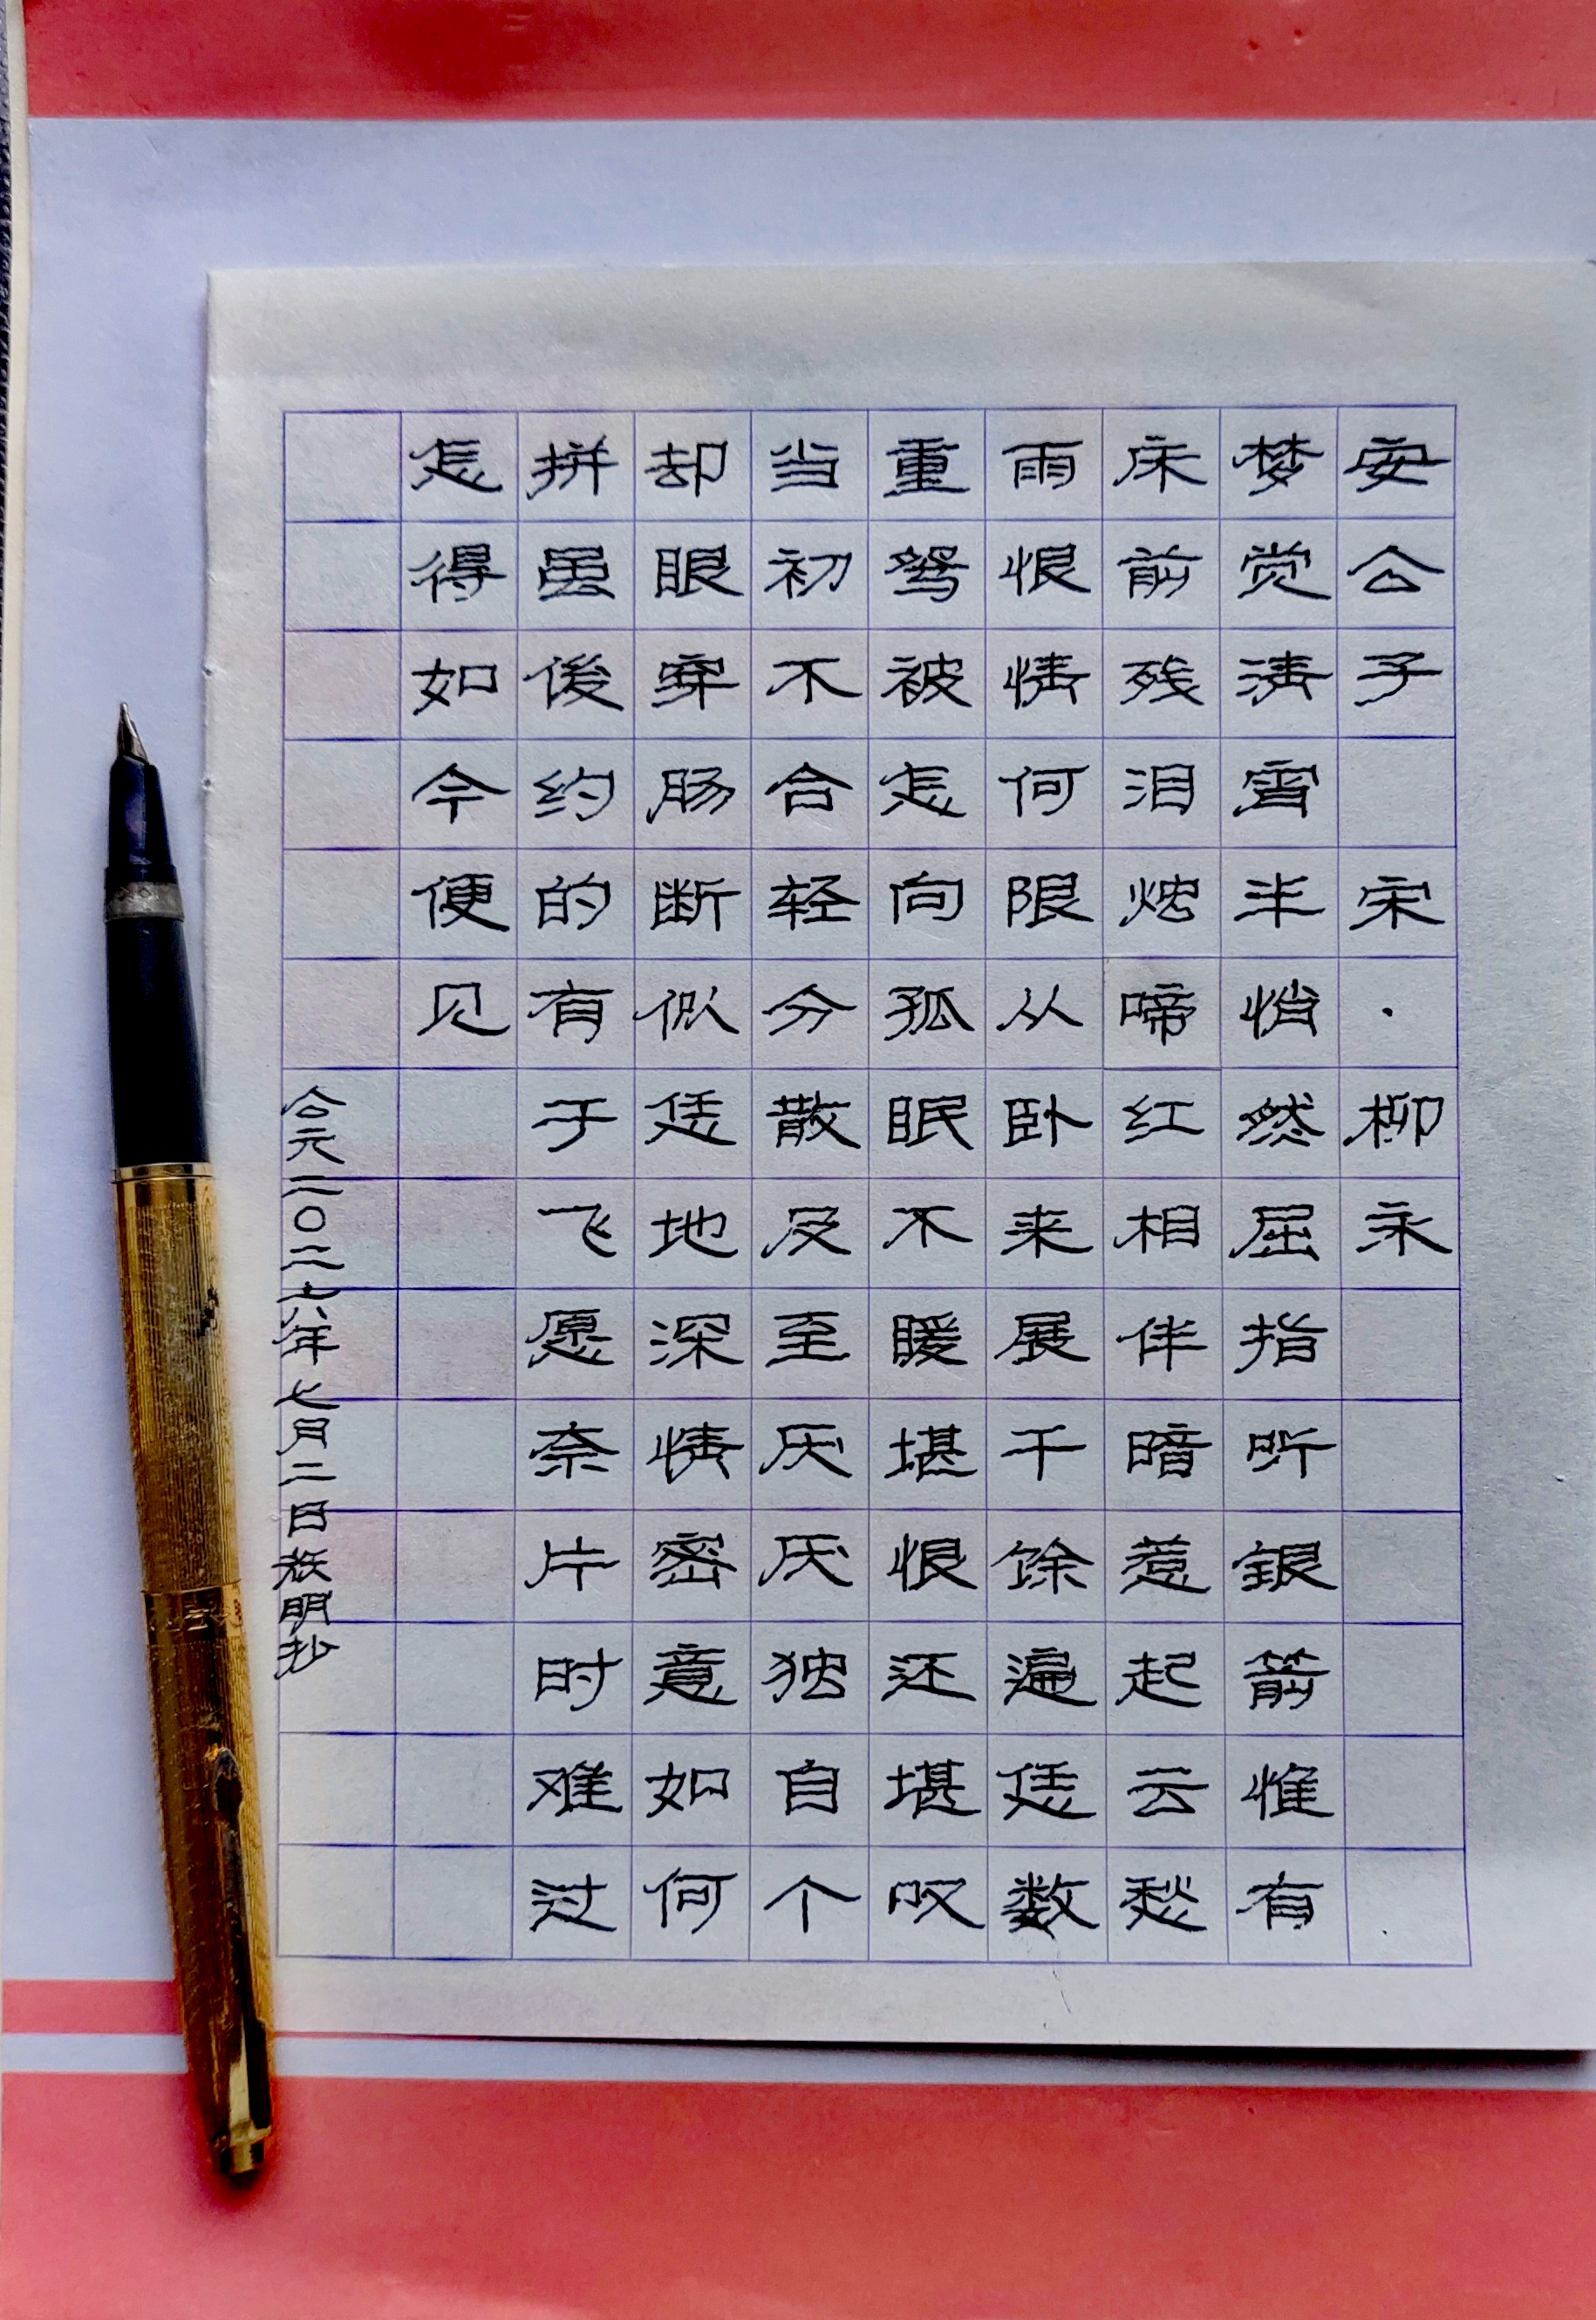 安公子 宋·柳永
梦觉清宵半悄然屈指听银箭惟有
床前残泪烛啼红相伴暗惹起云愁
雨恨情何限从卧来展千馀遍恁数
重鸳被怎向孤眠不暖堪恨还堪叹
当初不合轻分散及至厌厌独自个
却眼穿肠断似恁地深情密意如何
拼虽後约的有于飞愿奈片时难过
怎得如今便见
公元二〇二六年七月二日明抄